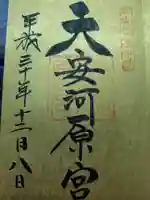 天安河原宮
平成三十年十二月八日